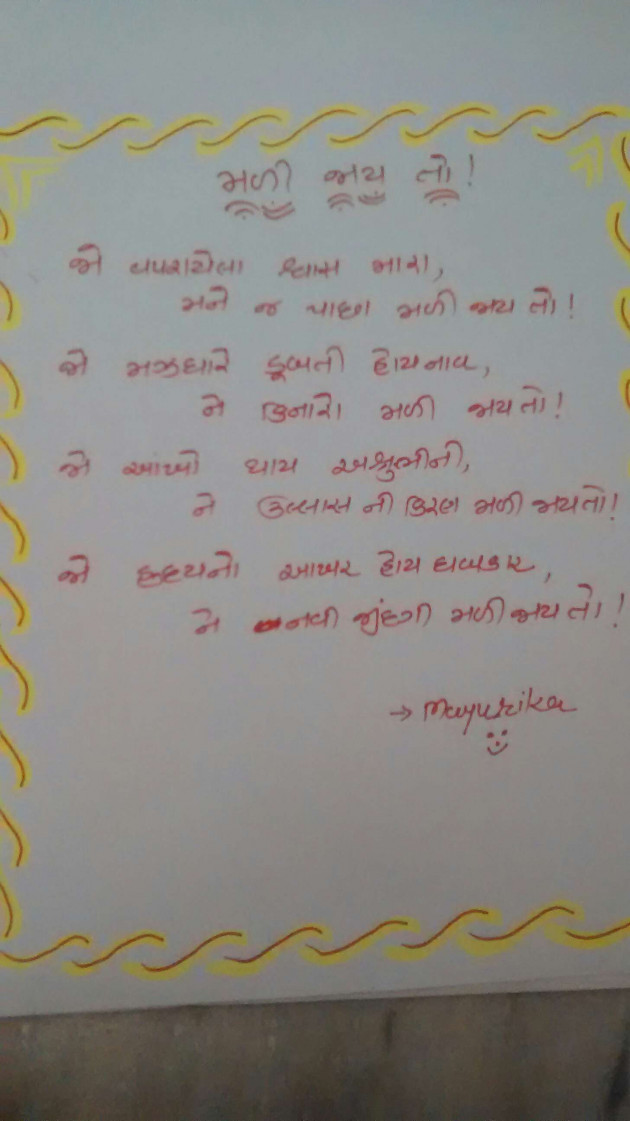 મળી જાય તો!
જો વપરાયેલા શ્વાસ મારા,
મને જ પાછા મળી જાય તો!
જો મઝધારે ડૂબતી હોય નાવ,
ને કિનારો મળી જાય તો!
જો આંખો થાય અશ્રુભીની,
ને ઉલ્લાસ ની કિરણ મળી જાય તો!
જો હૃદયનો આખર હોય ધબકાર,
ને નવી જીંદગી મળી જાય તો!
→ Mayurika